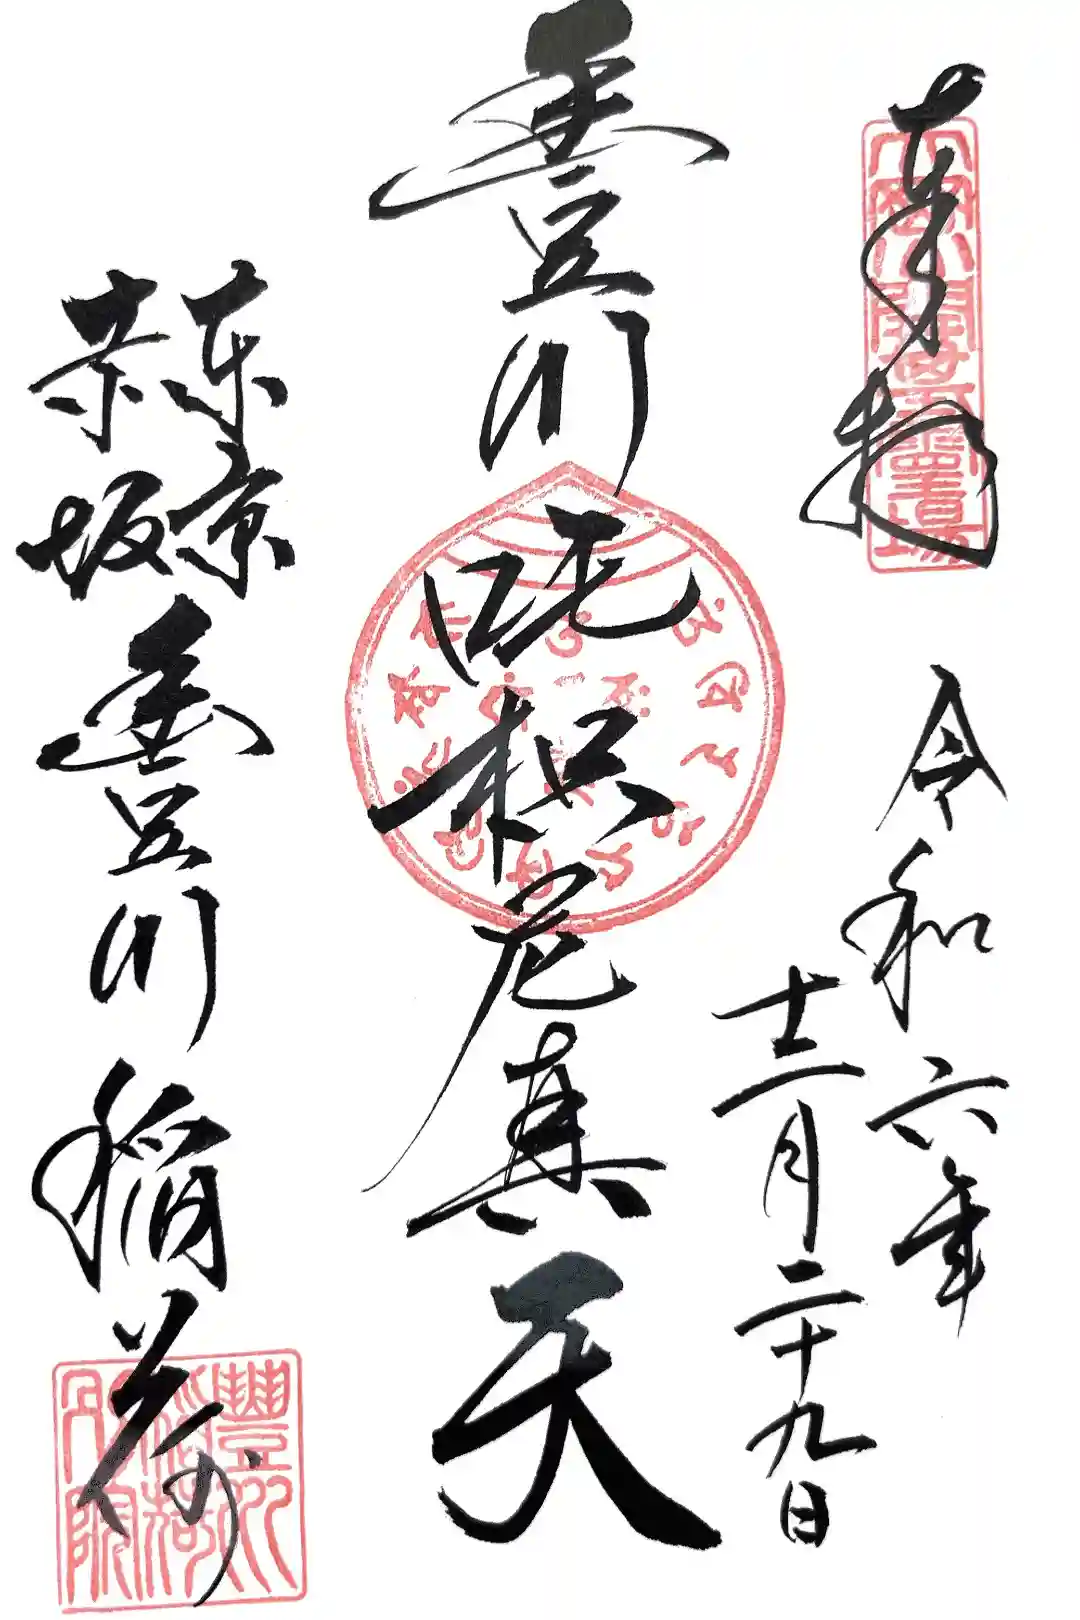 奉拝
令和六年
十二月二十九日
豊川吒枳尼真天
東京
赤坂
豊川稲荷